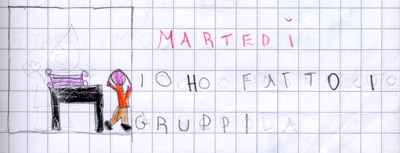 MARTEDÌ
IO HO FATTO I
GRUPPI